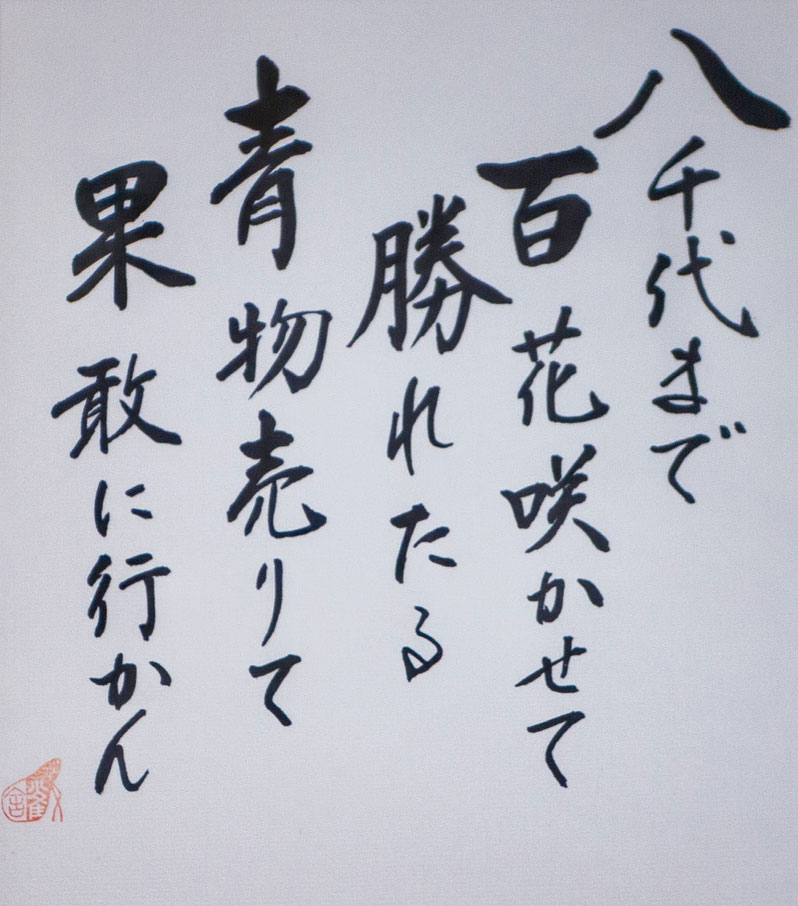 八千代まで
百花咲かせて
勝れたる
青物売りて
果敢に行かん